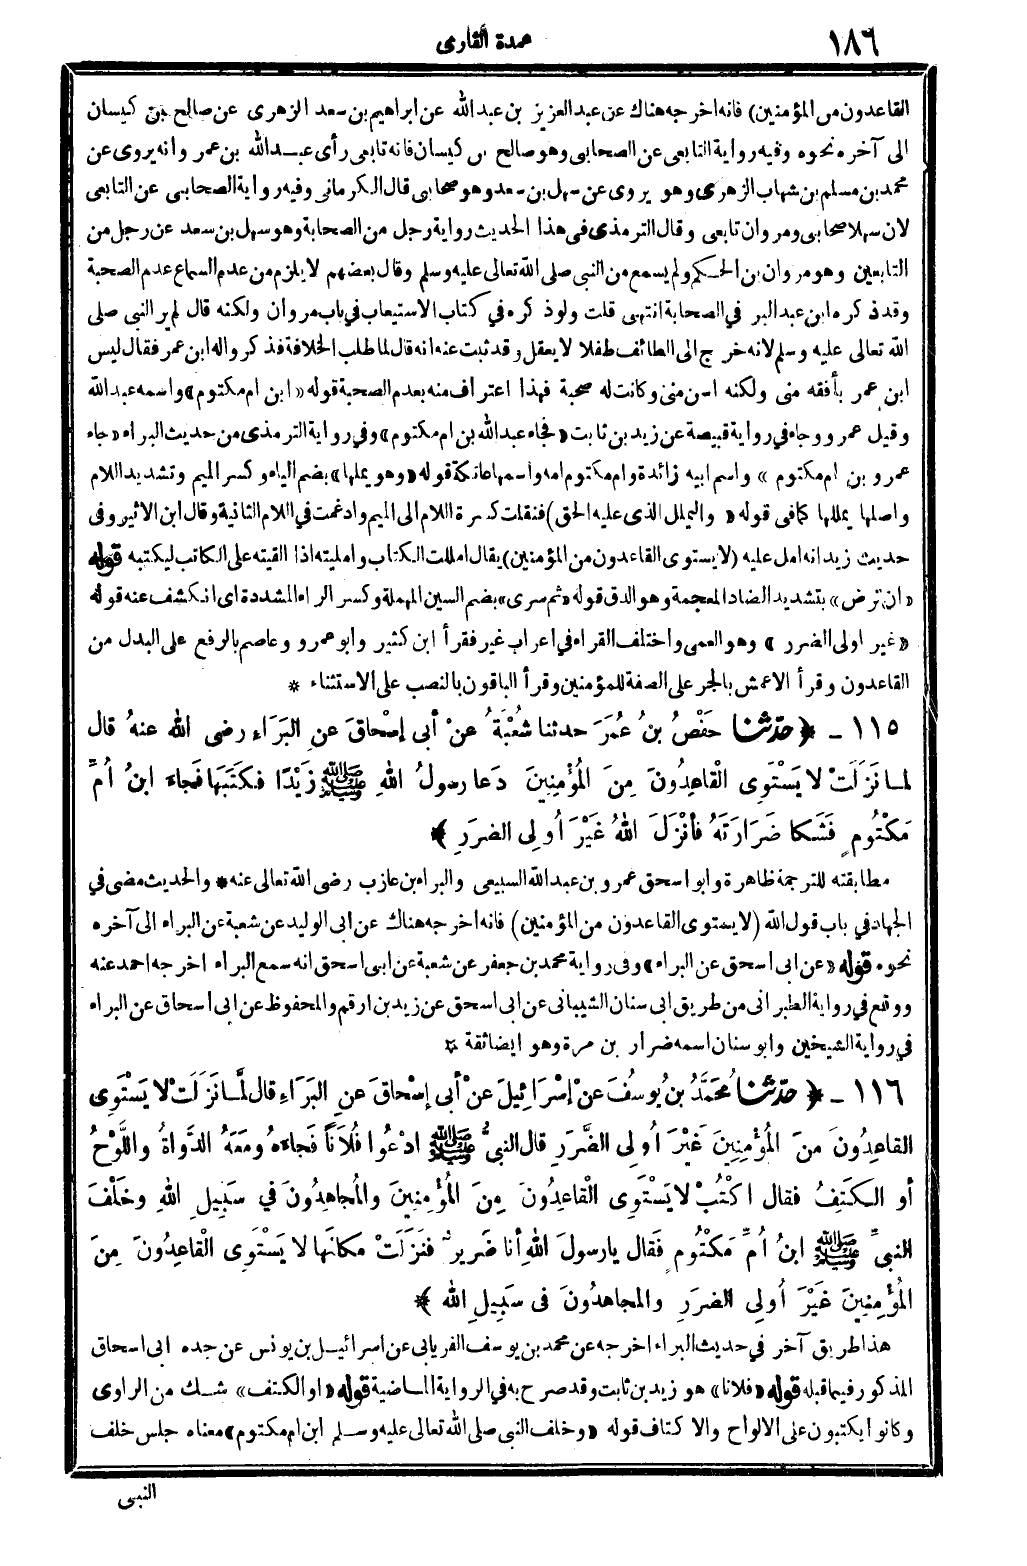 ١٨٦
عمدة القارى
القاعدون من المؤمنين) فانه اخرجه هناك عن عبد العزيز بن عبد الله عن ابراهيم بن سعد الزهرى عن صالح بن كيسان
الى آخره نحوه وفيه رواية التابعى عن الصحابى وهو صالح بن كيسان فانه تابعى رأى عبد الله بن عمر وانه يروى عن
محمد بن مسلم بن شهاب الزهرى وهو يروى عن سهل بن سعد وهو صحابى قال الكرمانى وفيه رواية الصحابى عن التابعى
لان سهلا صحابى ومروان تابعى وقال الترمذى فى هذا الحديث رواية رجل من الصحابة وهو سهل بن سعد عن رجل من
التابعين وهو مروان بن الحكم ولم يسمع من النبي صلى الله تعالى عليه وسلم وقال بعضهم لا يلزم من عدم السماع عدم الصحبة
وقد ذكره ابن عبد البر في الصحابة انتهى قلت ولو ذكره في كتاب الاستيعاب في باب مروان ولكنه قال لم ير النبي صلى
الله تعالى عليه وسلم لانه خرج الى الطائف طفلا لا يعقل وقد ثبت عنه انه قال لما طلب الخلافة فذكروا له ابن عمر فقال ليس
ابن عمر بأفقه منى ولكنه اسن منى وكانت له صحبة فهذا اعتراف منه بعدم الصحبة قوله «ابن ام مكتوم» واسمه عبد الله
وقيل عمرو وجاء في رواية قبيصة عن زيد بن ثابت «فجاء عبد الله بن ام مكتوم» وفي رواية الترمذى من حديث البراء «جاء
عمرو بن ام مكتوم» واسم ابيه زائدة وام مكتوم امه واسمها عاتكة قوله «وهو يملها» بضم الياء وكسر الميم وتشديد اللام
واصلها يمللها كما فى قوله «وليملل الذى عليه الحق) فنقلت كسرة اللام الى الميم وادغمت في اللام الثانية وقال ابن الاثير وفى
حديث زيد انه امل عليه (لا يستوى القاعدون من المؤمنين) يقال امللت الكتاب وامليته اذا القيته على الكاتب ليكتبه قوله
«ان ترض» بتشديد الضاد المعجمة وهو الدق قوله «ثم سرى» بضم السين المهملة وكسر الراء المشددة اى انكشف عنه قوله
«غير اولى الضرر» وهو العمى واختلف القراء في اعراب غير فقرأ ابن كثير وابو عمرو وعاصم بالرفع على البدل من
القاعدون وقرأ الاعمش بالجر على الصفة للمؤمنين وقرأ الباقون بالنصب على الاستثناء *
١١٥ - ﴿ حدثنا حَفْصُ بنُ عُمَرَ حدثنا شُعْبَةُ عنْ أبى إسْحاقَ عنِ البَرَاءِ رضى اللهُ عنهُ قال
لما نَزَلَتْ لا يَسْتَوِى الْقاعِدُونَ مِنَ المُؤْمِنِينَ دَعا رسولُ اللهِ ﷺ زَيْدًا فكَتَبَها فجاءَ ابنُ أُمِّ
مَكْتُومٍ فَشَكا ضَرَارَتَهُ فأنْزَلَ اللهُ غَيْرَ أُولِى الضرَرِ ﴾
مطابقته للترجمة ظاهرة وابو اسحق عمرو بن عبد الله السبيعى والبراء بن عازب رضى الله تعالى عنه * والحديث مضى في
الجهاد في باب قول الله (لا يستوى القاعدون من المؤمنين) فانه اخرجه هناك عن ابى الوليد عن شعبة عن البراء الى آخره
نحوه قوله «عن ابى اسحق عن البراء» وفى رواية محمد بن جعفر عن شعبة عن ابى اسحق انه سمع البراء اخرجه احمد عنه
ووقع في رواية الطبرانى من طريق ابى سنان الشيبانى عن ابى اسحق عن زيد بن ارقم والمحفوظ عن ابى اسحاق عن البراء
في رواية الشيخين وابو سنان اسمه ضرار بن مرة وهو ايضا ثقة *
١١٦ - ﴿ حدثنا مُحَمَّدُ بنُ يُوسُفَ عنْ إسْرَائِيلَ عنْ أبى إسْحاقَ عنِ البَرَاءِ قال لَمَّا نَزَلَتْ لا يَسْتَوِى
القاعِدُونَ منَ المُؤْمِنِينَ غَيْرَ أُولِى الضَّرَرِ قال النبيُّ ﷺ ادْعُوا فُلَاناً فَجاءَهُ ومَعَهُ الدَّوَاةُ واللَّوْحُ
أو الكَتِفُ فقال اكْتُبْ لا يَسْتَوِى الْقاعِدُونَ مِنَ المُؤْمِنِينَ والمُجاهِدُونَ فِي سَبِيلِ اللهِ وخَلْفَ
النبيِّ ﷺ ابنُ أُمِّ مَكْتُومٍ فَقال يا رسولَ اللهِ أنا ضَرِيرٌ فنَزَلَتْ مَكانَها لا يَسْتَوِى الْقاعِدُونَ مِنَ
المُؤْمِنِينَ غَيْرَ أُولِى الضرَرِ والمجاهِدُونَ فى سَبِيلِ الله ﴾
هذا طريق آخر في حديث البراء اخرجه عن محمد بن يوسف الفريابى عن اسرائيل بن يونس عن جده ابى اسحاق
المذكور فيما قبله قوله «فلانا» هو زيد بن ثابت وقد صرح به في الرواية الماضية قوله «او الكتف» شك من الراوى
وكانوا يكتبون على الالواح والاكتاف قوله «وخلف النبي صلى الله تعالى عليه وسلم ابن ام مكتوم» معناه جلس خلف
النبى